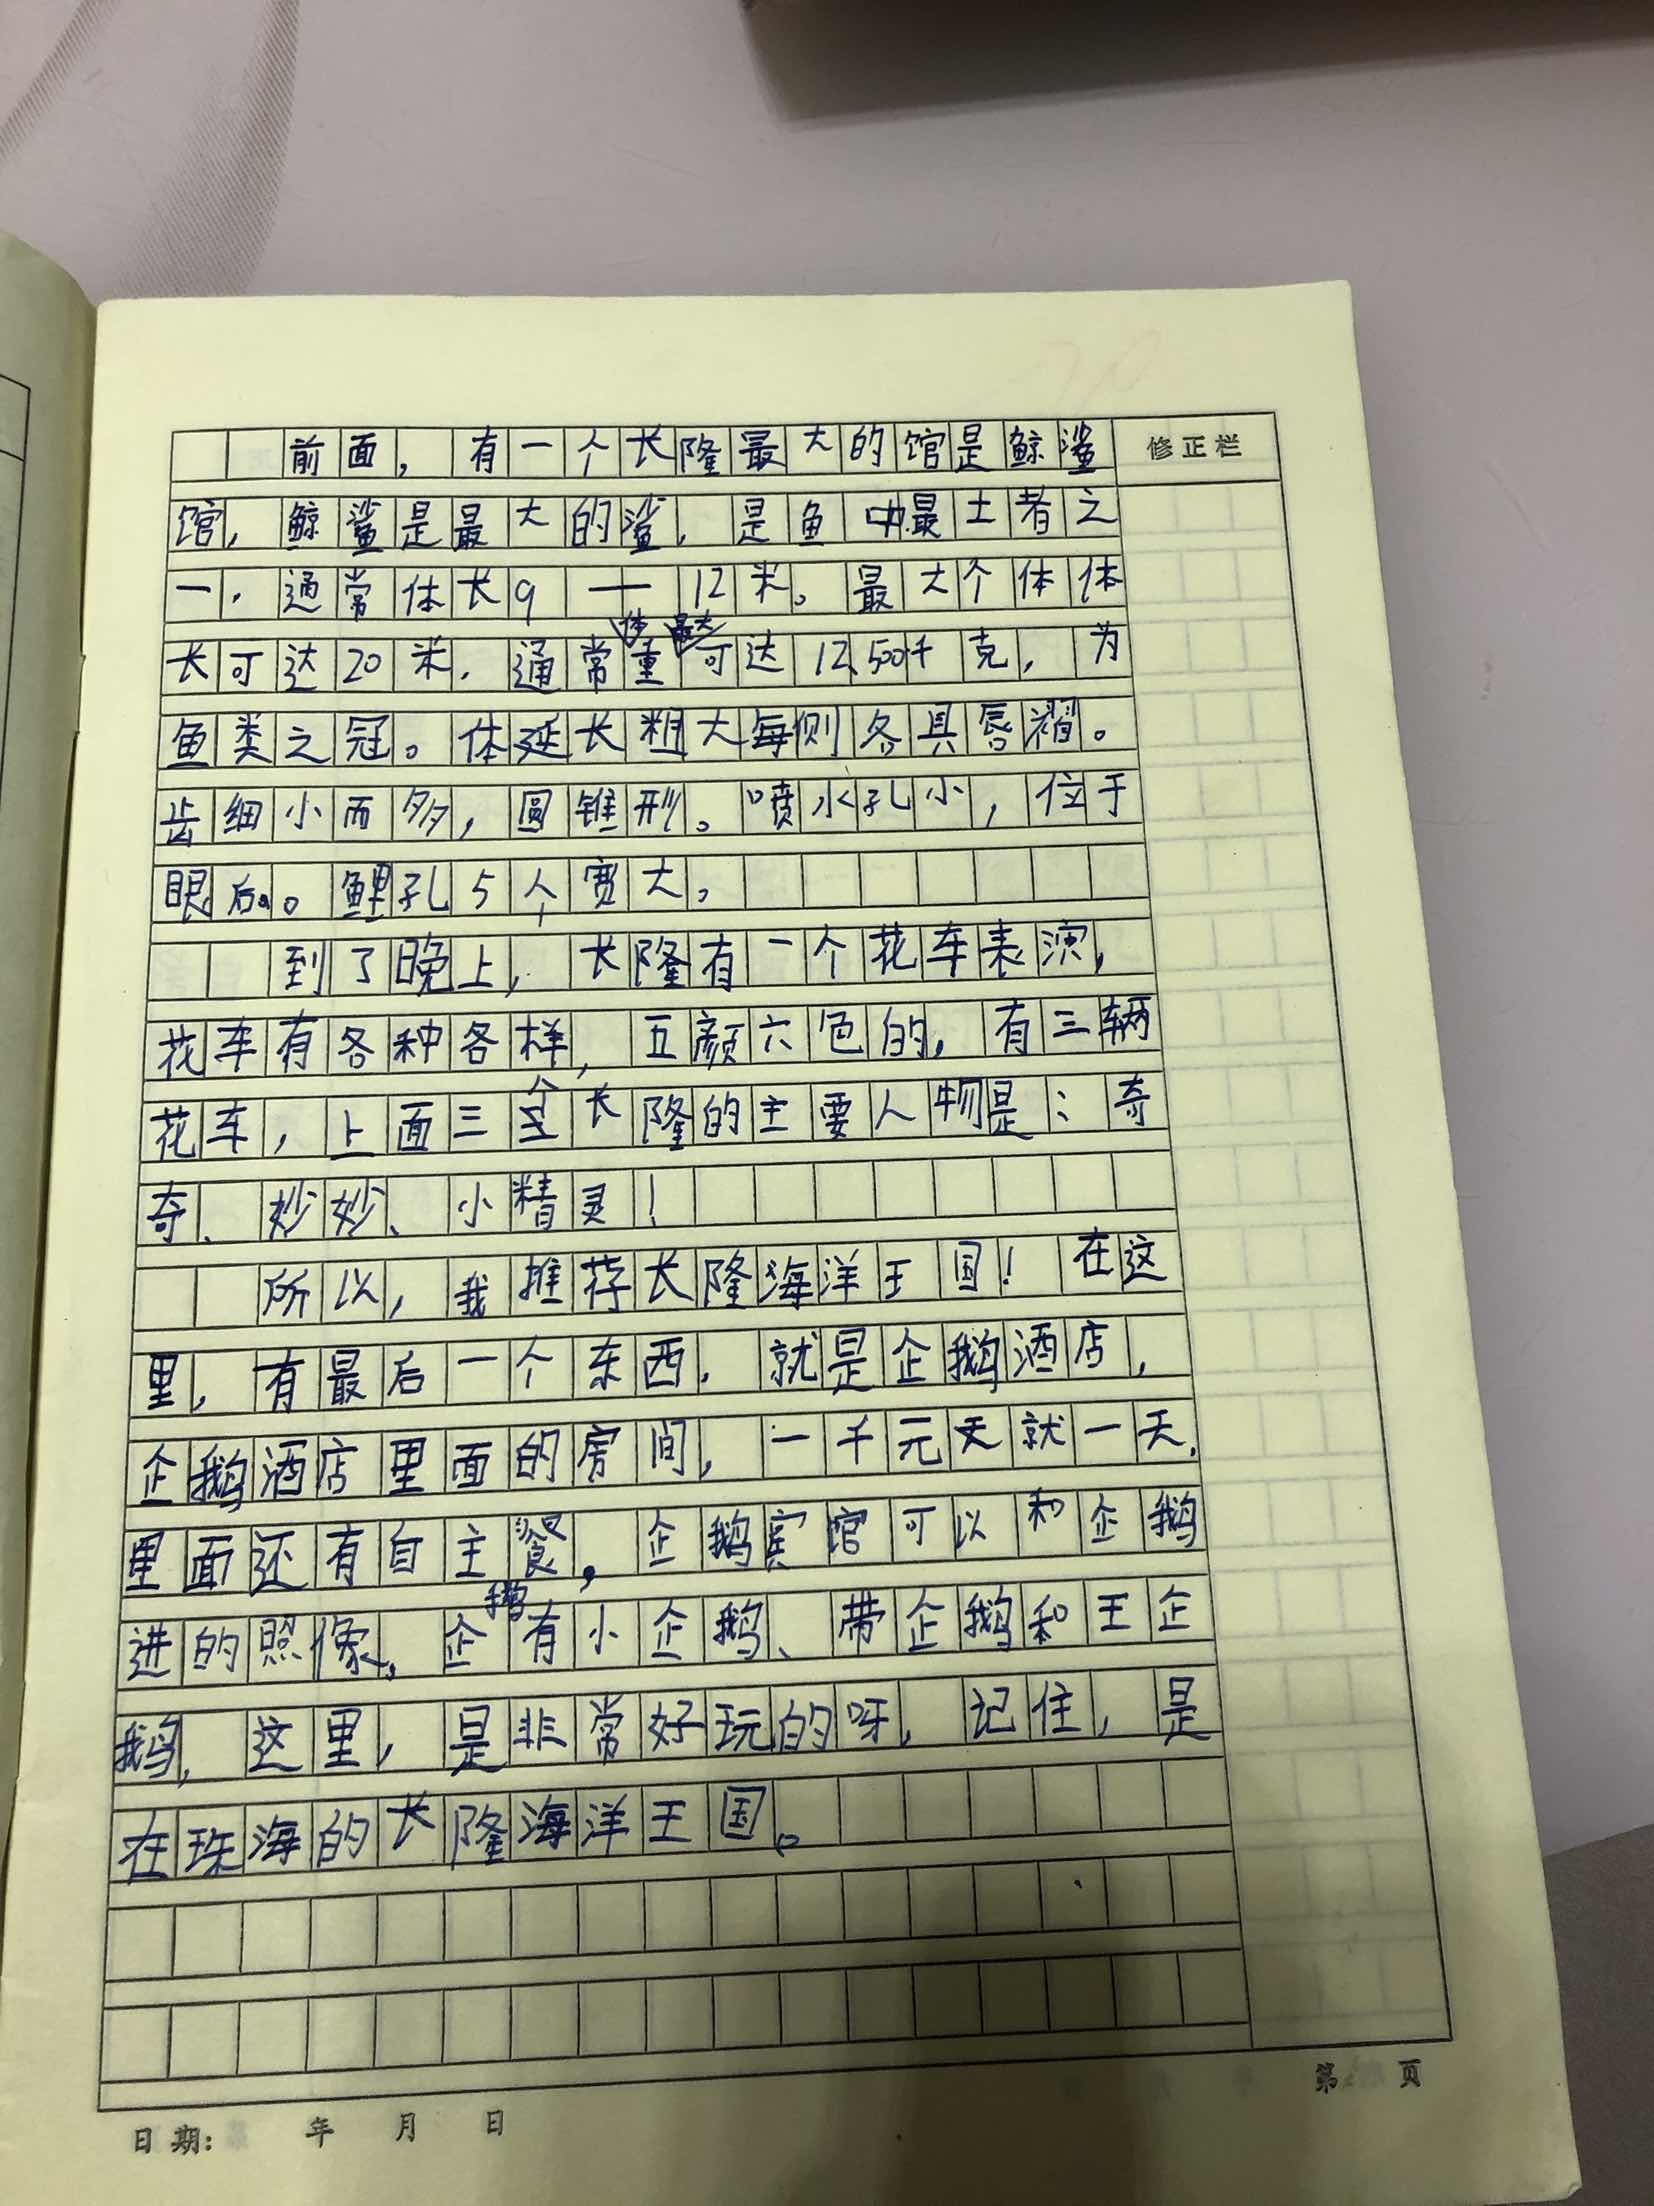 前面，有一个长隆最大的馆是鲸鲨
修正栏
馆，鲸鲨是最大的鲨，是鱼中最土者之
一，通常体长9—12米。最大个体体
长可达20米，通常体重最大可达12500千克，为
鱼类之冠。体延长粗大每侧各具唇褶。
齿细小而多，圆锥形。喷水孔小，位于
眼后。鲤孔5个宽大，
到了晚上，长隆有一个花车表演，
花车有各种各样，五颜六色的，有三辆
花车，上面三个长隆的主要人物是：奇
奇、妙妙、小精灵！
所以，我推荐长隆海洋王国！在这
里，有最后一个东西，就是企鹅酒店，
企鹅酒店里面的房间，一千元天就一天，
里面还有自主餐，企鹅宾馆可以和企鹅
进的照像，企鹅有小企鹅、带企鹅和王企
鹅，这里，是非常好玩的呀，记住，是
在珠海的长隆海洋王国。
第 页
日期： 年 月 日